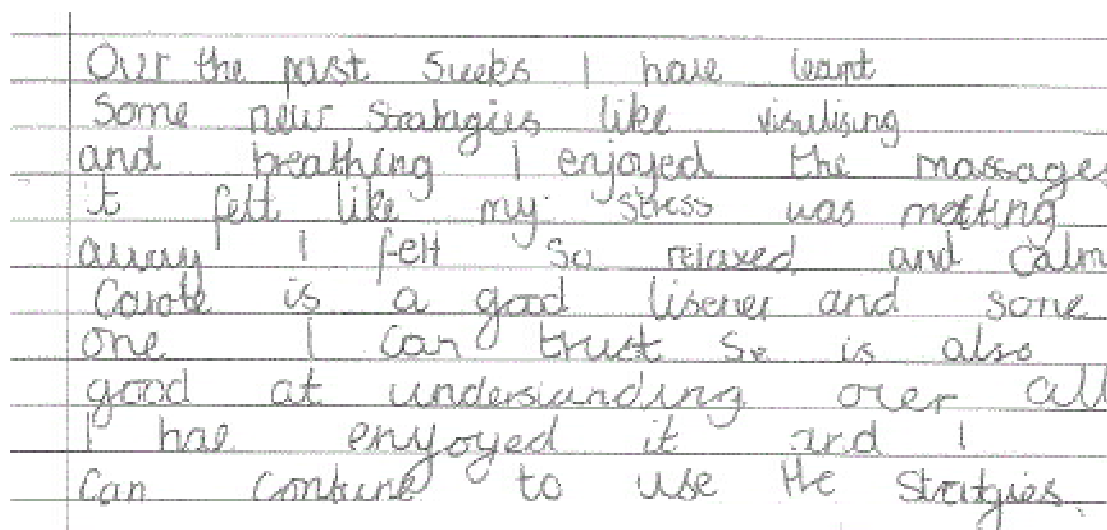 Over the past 5weeks I have learnt
Some new Stratagies like visulising
and breathing I enjoyed the massages
it felt like my stress was melting
away I felt so relaxed and calm
Carole is a good lisener and some
one I can trust Se is also
good at understanding over all
I hae enyoyed it and I
can contune to use the stratgies.